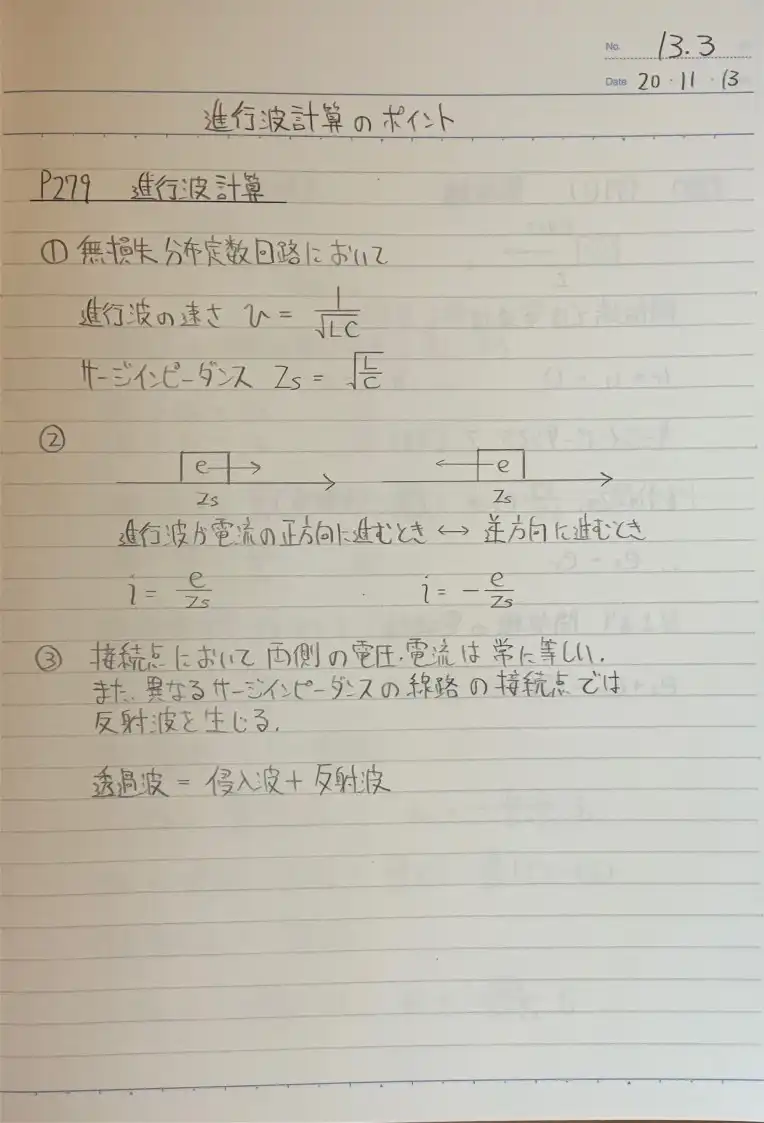 No. 13.3
Date 20・11・13
進行波計算のポイント
P279 進行波計算
① 無損失分布定数回路において
進行波の速さ υ = 1/√LC
サージインピーダンス Zs = √L/C
②
e e
Zs Zs
進行波が電流の正方向に進むとき ↔ 逆方向に進むとき
i = e/Zs i = -e/Zs
③ 接続点において両側の電圧・電流は常に等しい.
また、異なるサージインピーダンスの線路の接続点では
反射波を生じる.
透過波 = 侵入波 + 反射波